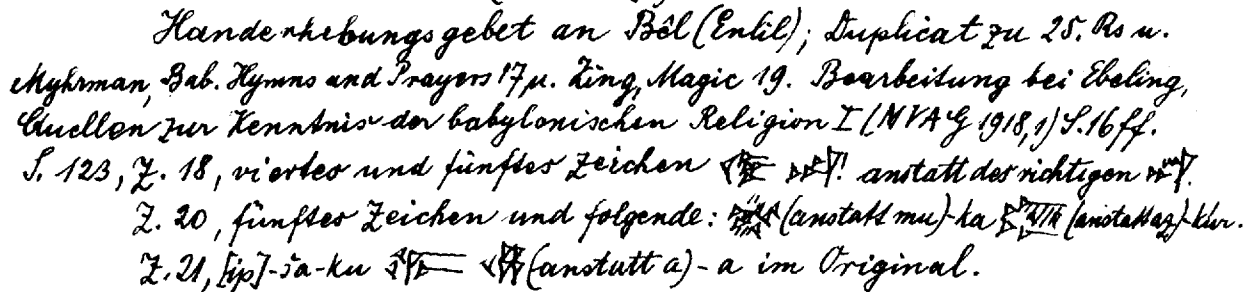 Handerhebungsgebet an Bêl (Enlil); Duplicat zu 25. Rs u.
Myhrman, Bab. Hymns and Prayers 17 u. King, Magic 19. Bearbeitung bei Ebeling,
Quellen zur Kenntnis der babylonischen Religion I (MVAG 1918,1) S. 16 ff.
S. 123, Z. 18, viertes und fünftes Zeichen ! anstatt des richtigen .
Z. 20, fünftes Zeichen und folgende: (anstatt mu)-ka (anstatt az)-kur.
Z. 21, [ip]-ša-ku (anstatt a) - a im Original.